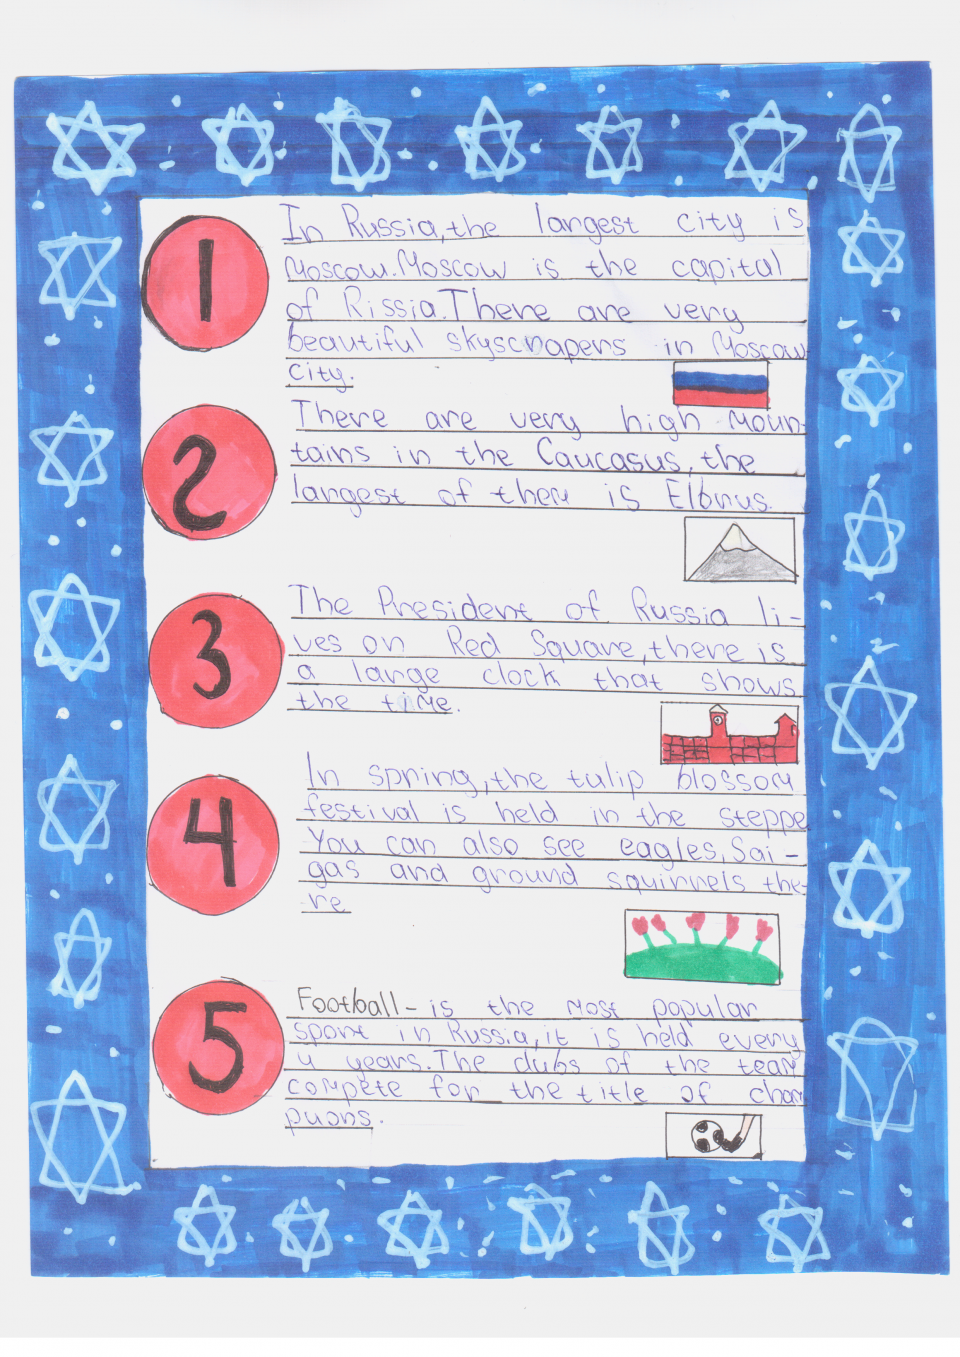 1
In Russia,the largest city is
Moscow.Moscow is the capital
of Rissia.There are very
beautiful skyscrapers in Moscow
city.
2
There are very high moun-
tains in the Caucasus, the
largest of them is Elbrus.
3
The President of Russia li-
ves on Red Square,there is
a large clock that shows
the time.
4
In spring,the tulip blossom
festival is held in the steppe
You can also see eagles,Sai-
gas and ground squirrels the-
re
5
Football- is the most popular
sport in Russia,it is held every
4 years.The clubs of the team
compete for the title of cham
puons.